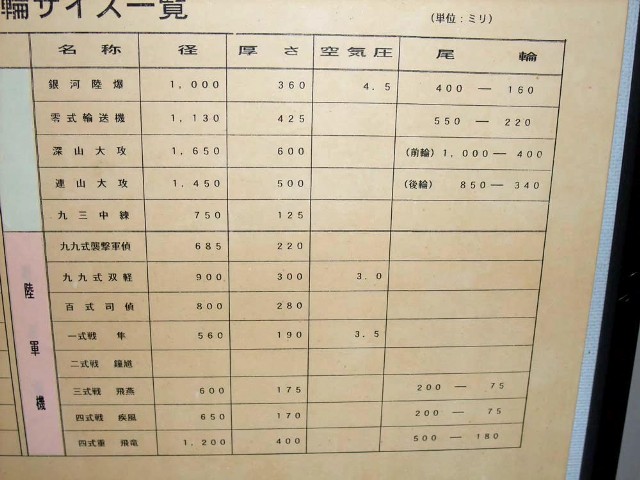 輪サイズ一覧
(単位:ミリ)
名称 径 厚さ 空気圧 尾輪
銀河陸爆 1,000 360 4.5 400 — 160
零式輸送機 1,130 425 550 — 220
深山大攻 1,650 600 (前輪) 1,000 — 400
連山大攻 1,450 500 (後輪) 850 — 340
九三中練 750 125
九九式襲撃軍偵 685 220
九九式双軽 900 300 3.0
百式司偵 800 280
一式戦 隼 560 190 3.5
二式戦 鐘馗
三式戦 飛燕 600 175 200 — 75
四式戦 疾風 650 170 200 — 75
四式重 飛竜 1,200 400 500 — 180
陸軍機